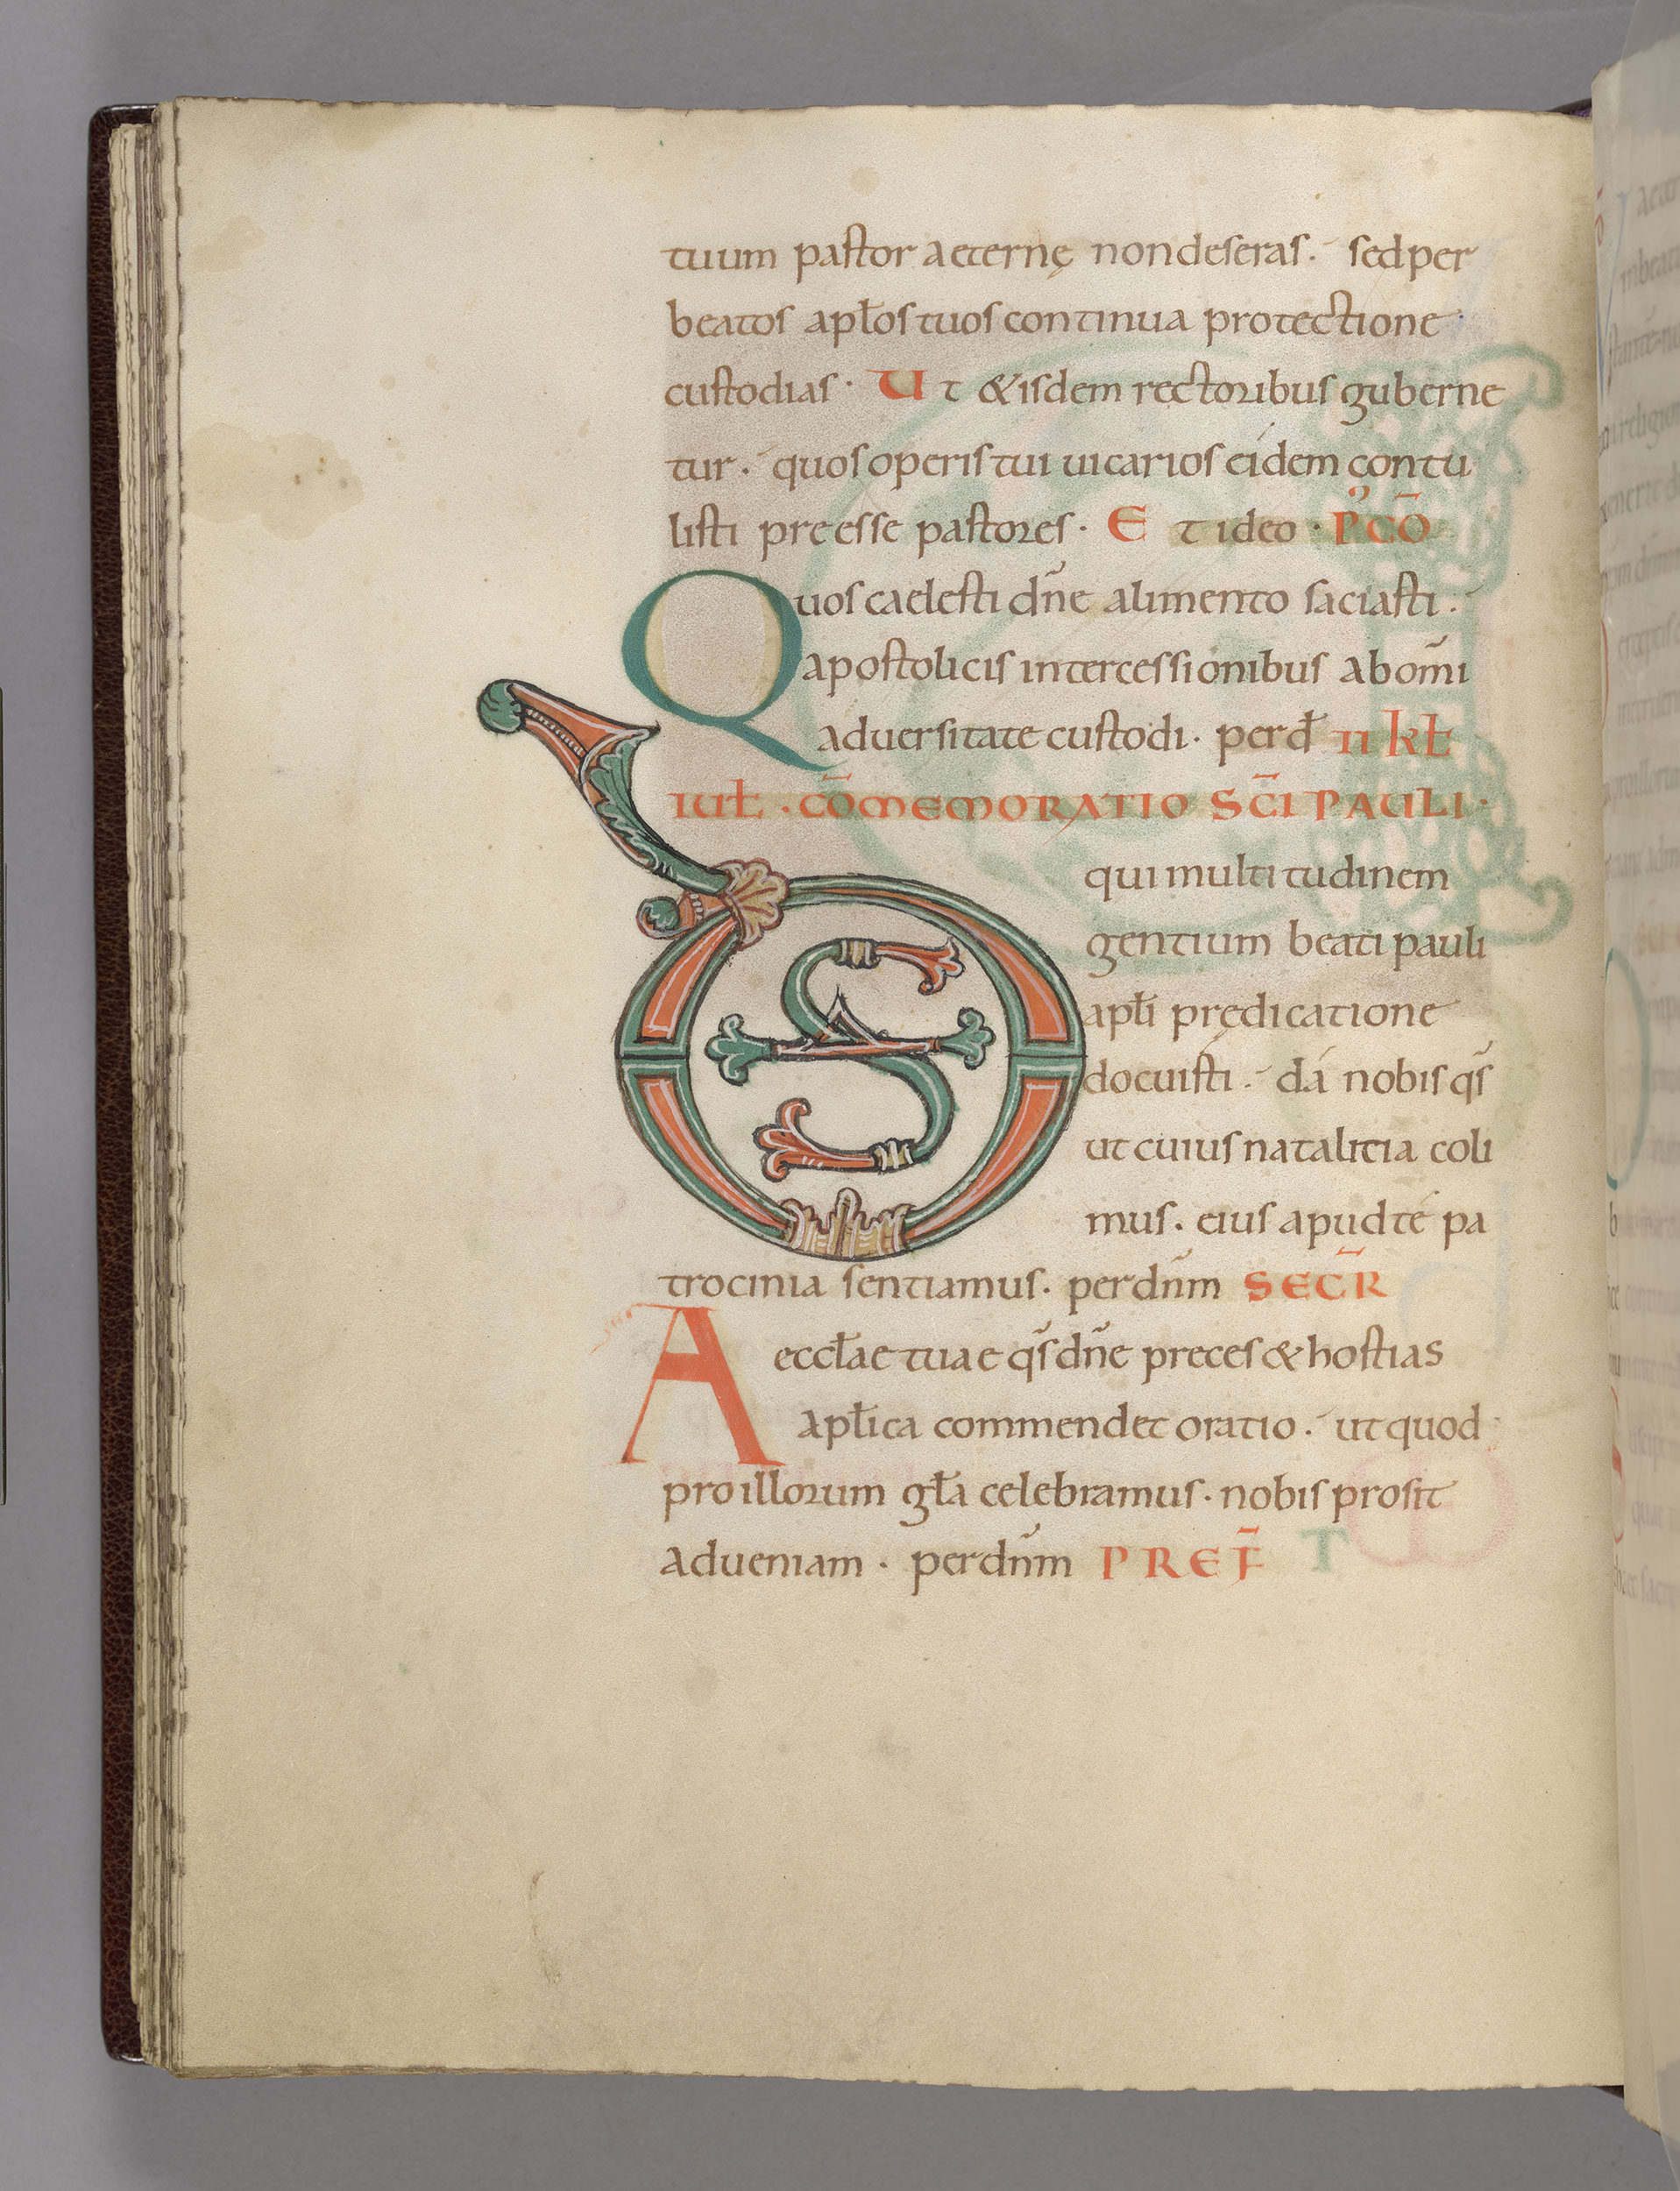 tuum pastor aeternę non deseras. sed per
beatos aptos tuos continua protectione
custodias. Ut & isdem rectoribus guberne
tur. quos operis tui uicarios eidem contu
listi preesse pastores. Et ideo. PCŌ
Quos caelesti dñe alimento saciasti.
apostolicis intercessionibus ab om̃i
aduersitate custodi. per dł II kł
iuł. CŌMEMORATIO SC̄I PAULI.
DS qui multitudinem
gentium beati pauli
apłi prędicatione
docuisti. dá nobis qs̃
ut cuius natalicia coli
mus. eius apud té pa
trocinia sentiamus. per dñm SEC̄R
A eccłae tuae qs̃ dñe preces & hostias
apłica commendet oratio. ut quod
pro illorum gła celebramus. nobis prosit
ad ueniam. per dñm PREF̄